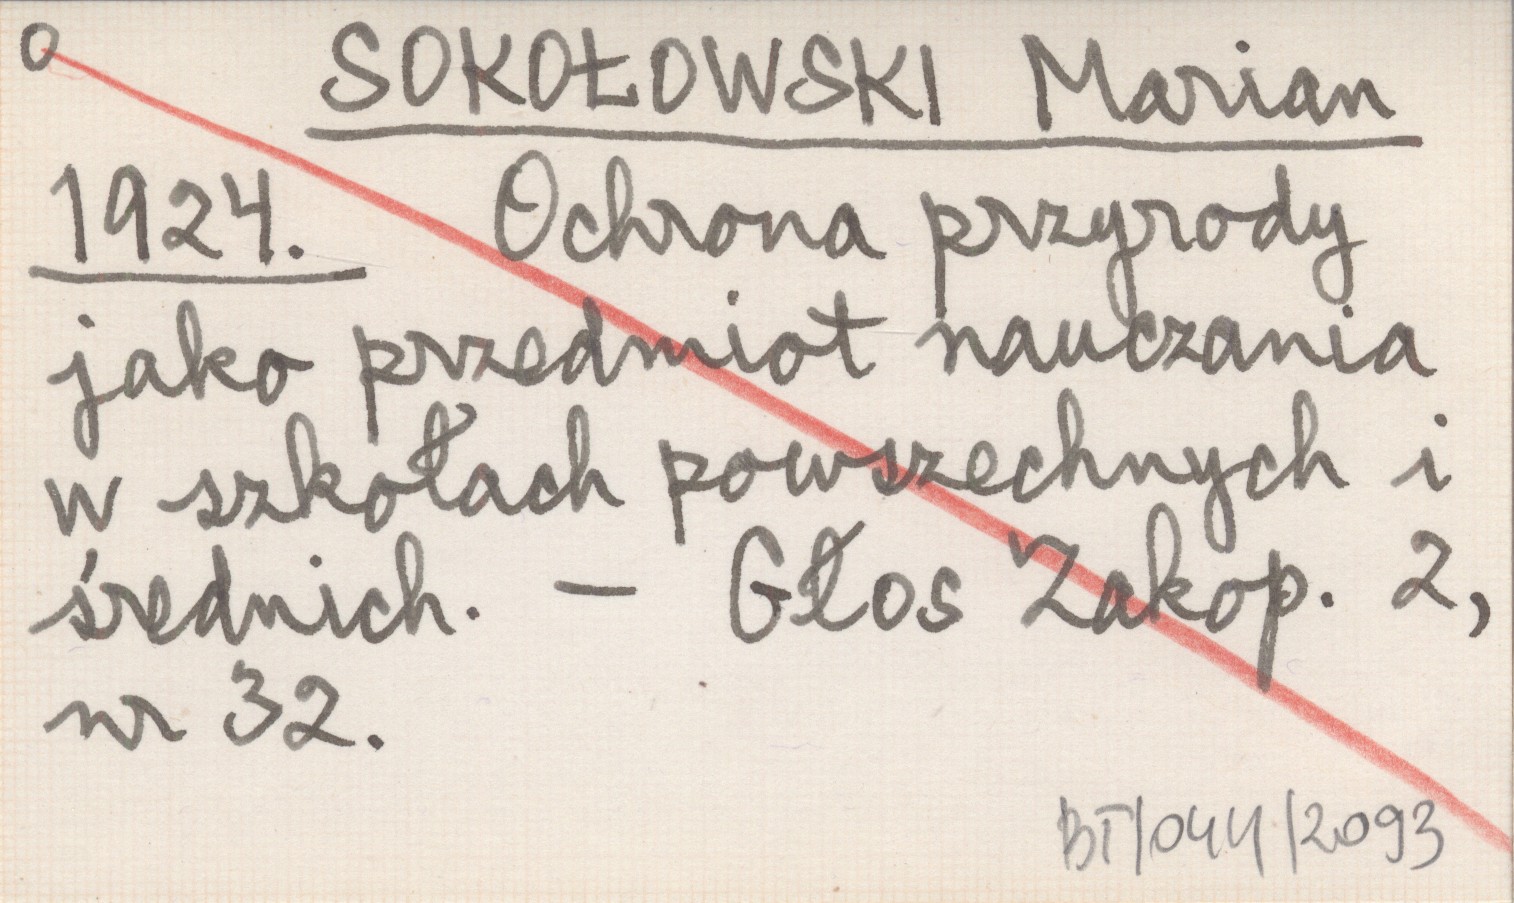 O SOKOŁOWSKI Marian
1924. Ochrona przyrody
jako przedmiot nauczania
w szkołach powszechnych i
średnich. - Głos Zakop. 2,
nr 32.
BT/044/2093